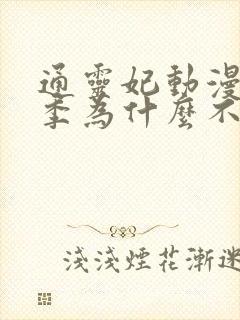 通靈妃動漫
季為什麼不
淺淺煙花漸迷